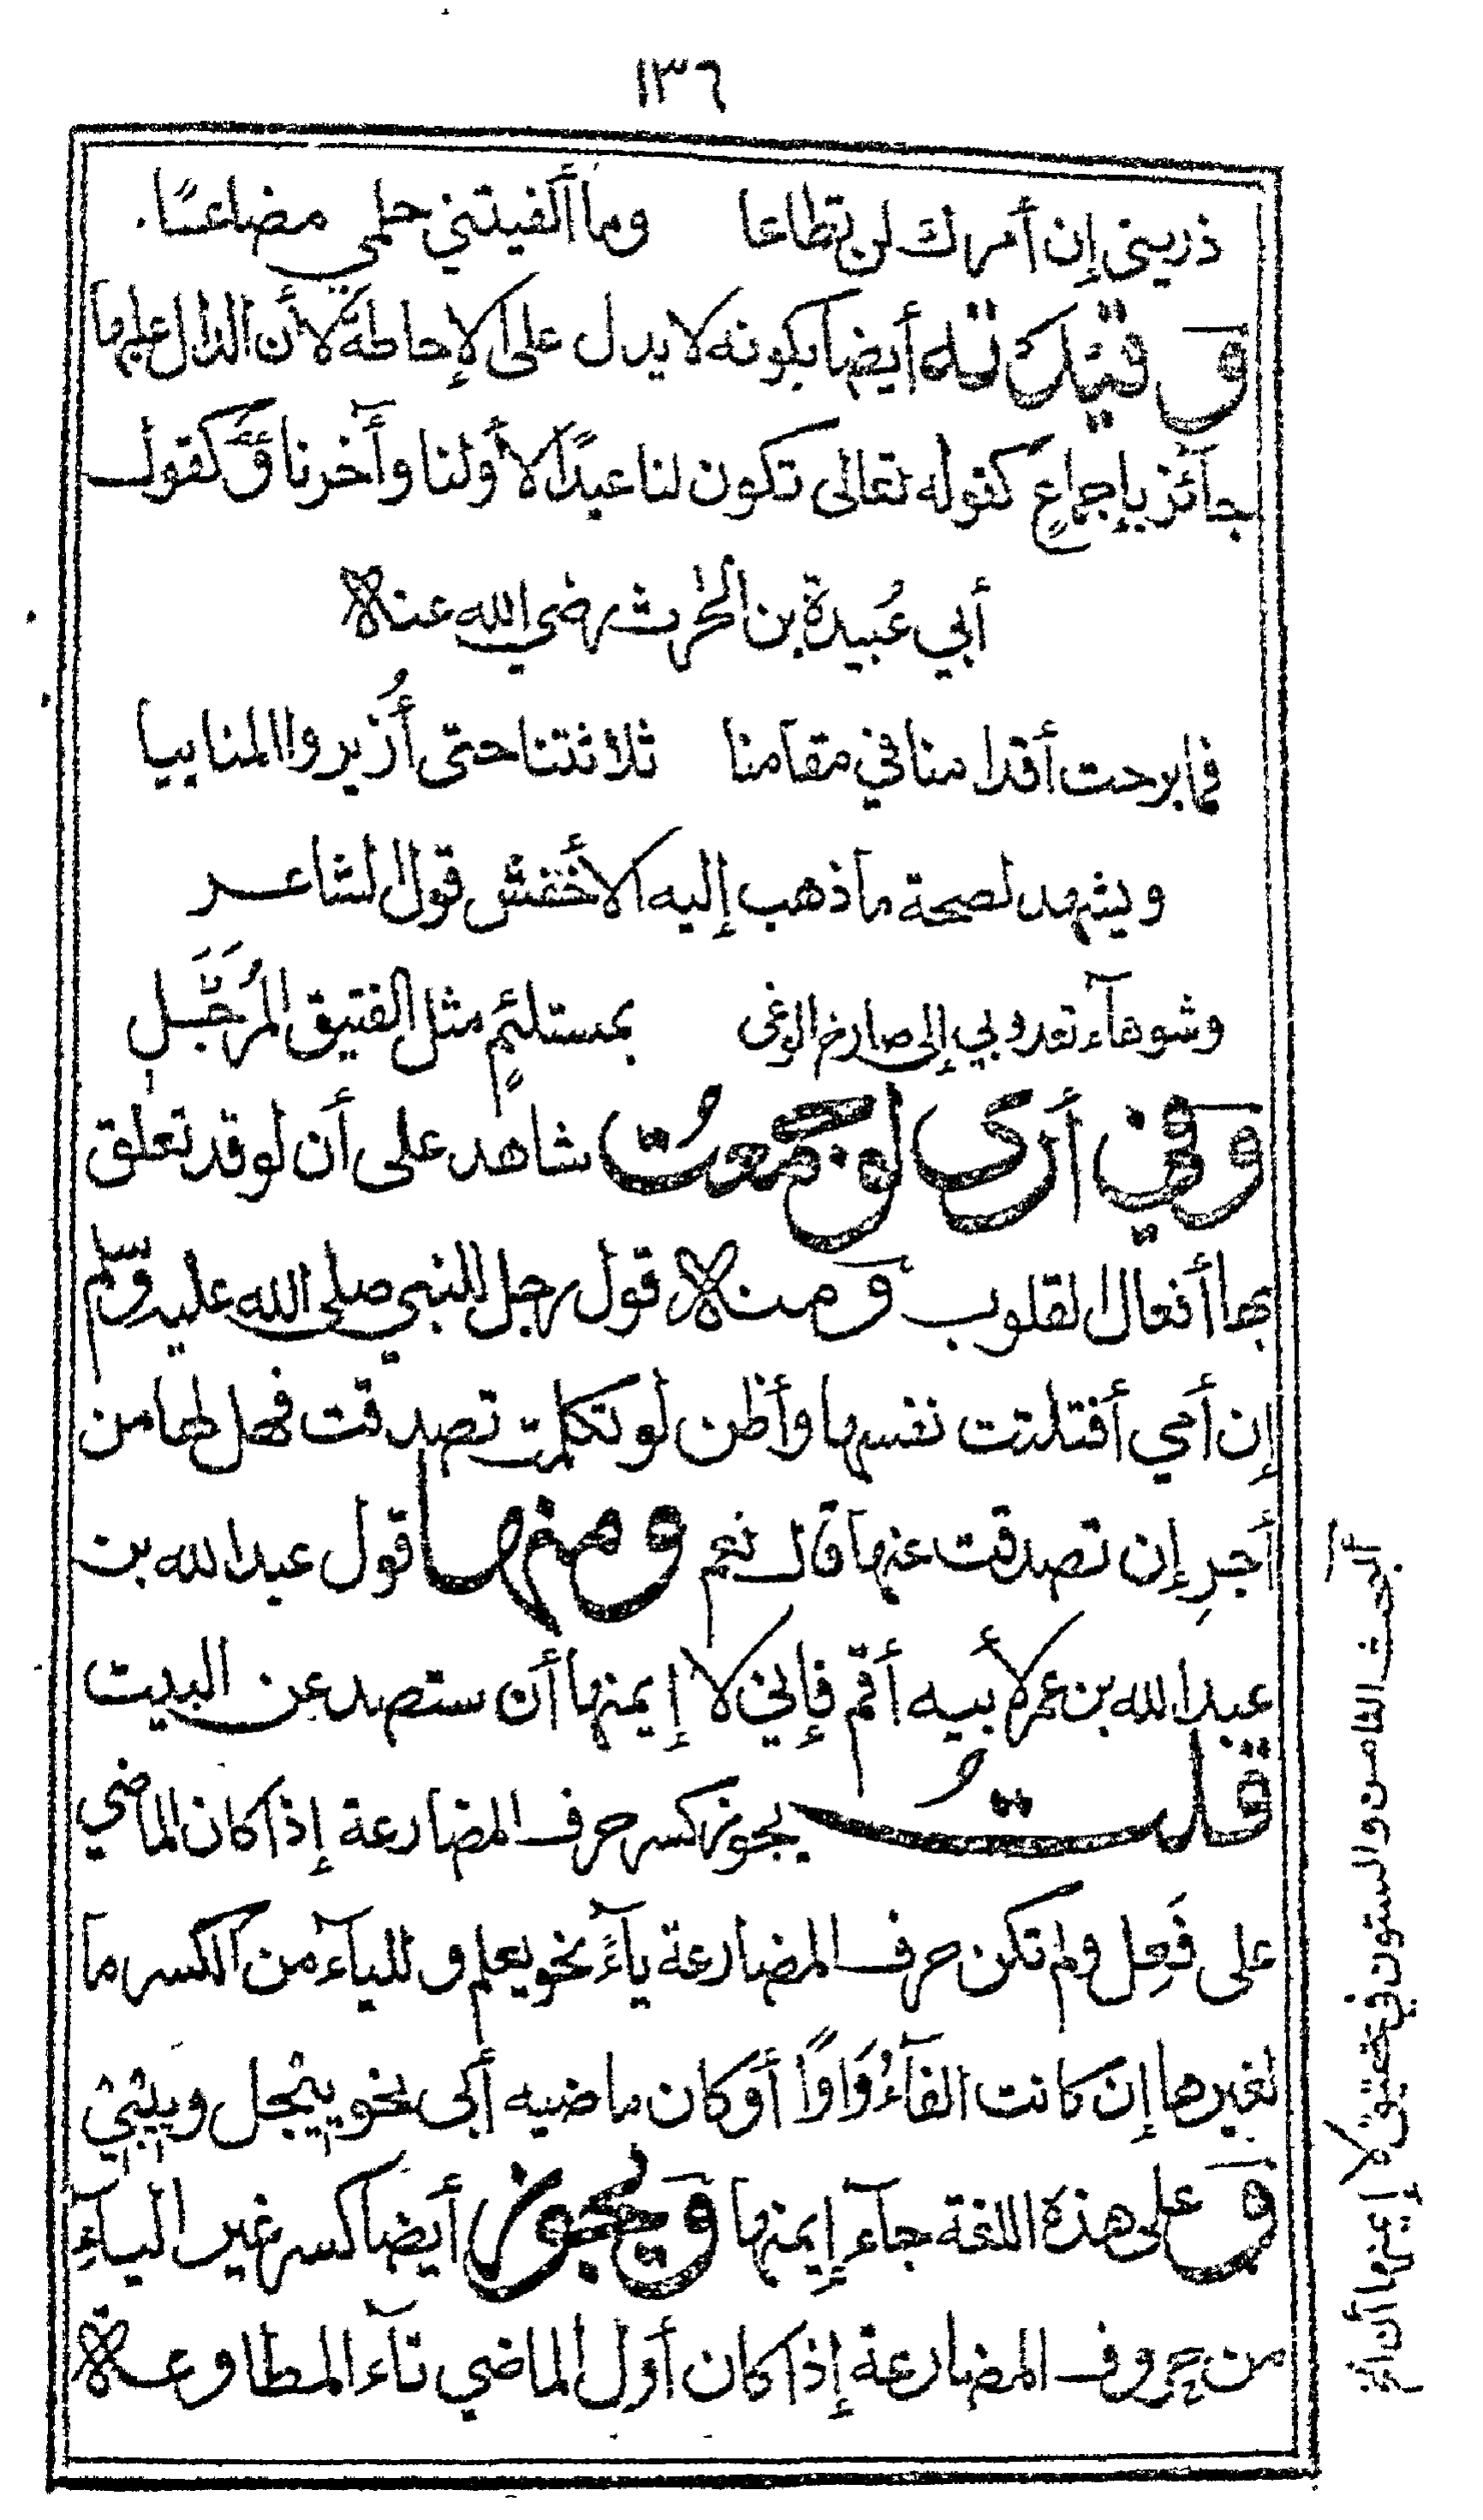 ١٣٦
ذريني إن أمرك لن تطاعا وما ألفيتني حلمي مضاعًا
وقيدته أيضا بكونه لا يدل على الإحاطة لأن الدال عليها
جآئز بإجماعٍ كقوله تعالى تكون لنا عيدًا لأولنا وآخرنا وكقول
أبي عُبيدة بن الحٰرث رضي الله عنه
فما برحت أقدامنا في مقامنا ثلاثتنا حتى أُزيروا المنا ييا
ويشهد لصحة ما ذهب إليه الأخفش قول الشاعر
وشوهآء تعدو بي إلى صارخ الوغى بمستلئمٍ مثل الفتيق المُرَحَّلِ
وفي أرى لو جمعت شاهد على أن لو قد تعلق
بها أفعال القلوب ومنه قول رجل للنبي صلى الله عليه وسلم
إن أمي أفتلتت نفسها وأظن لو تكلمت تصدقت فهل لها من
أجرٍ إن تصدقت عنها قال نعم ومنها قول عبد الله بن
عبد الله بن عمر لأبيه أقم فإني لا إيمنها أن ستصد عن البيت
قلت يجوز كسر حرف المضارعة إذا كان الماضي
على فَعِل ولم تكن حرف المضارعة يآءً نحو يعلم وللياء من الكسر مآ
لغيرها إن كانت الفآءُ وَاوًا أو كان ماضيه أبى نحو ييجل وييبى
وعلى هذه اللغة جآء إيمنها ويجوز أيضا كسر غير اليآءِ
من حروف المضارعة إذا كان أول الماضي تآء المطاوعة
البحث الثامن والستون في تحقيق لا إيمنها أن الخ